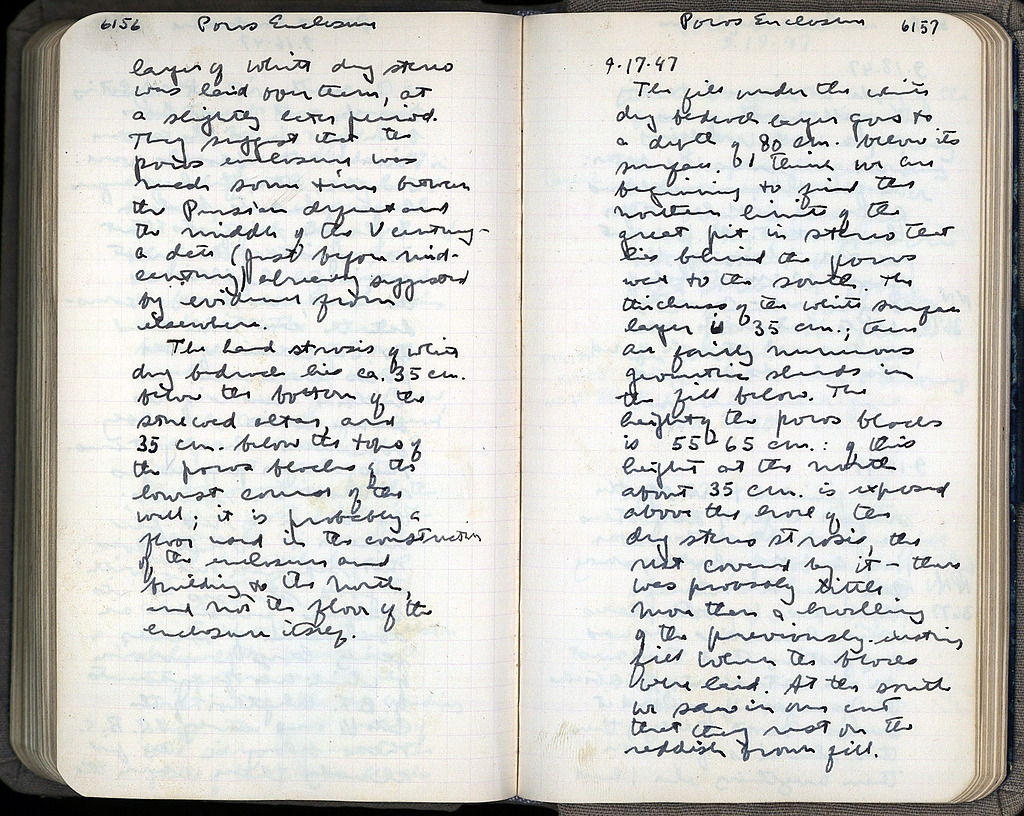 6156 Poros Enclosure
layer of white dug stereo
was laid over them, at
a slightly later period.
They suggest that the
poros enclosure was
made some time between
the Persian defeat and
the middle of the V century -
a date (just before mid-
century) already suggested
by evidence from
elsewhere.
The hard strosis of white
dug bedrock lies ca. 35 cm.
below the bottom of the
altar, and
35 cm. below the tops of
the poros blocks of the
lowest course of the
wall; it is probably a
floor used in the construction
of the enclosure and
building to the north,
and not the floor of the
enclosure itself.
Poros Enclosure 6157
9-17-47
The fill under the white
dug bedrock layer goes to
a depth of 80 cm. below its
surface. I think we are
beginning to find the
northern limits of the
great pit in stereo that
lies behind the poros
wall to the south. The
thickness of the white surface
layer is 35 cm.; there
are fairly numerous
geometric sherds in
the fill below. The
height of the poros blocks
is 55-65 cm.: of this
height at the north
about 35 cm. is exposed
above the level of the
dug stereo strosis, the
rest covered by it - there
was probably little
more than a levelling
of the previously existing
fill when the blocks
were laid. At the south
we saw in our cut
that they rest on the
reddish brown fill.